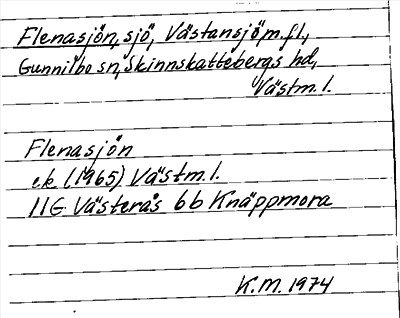 Flenasjön, sjö, Västansjö m.fl.,
Gunnilbo sn, Skinnskattebergs hd,
Västm.l.
Flenasjön
ek (1965) Västm.l.
11G Västerås 6b Knäppmora
K.M. 1974